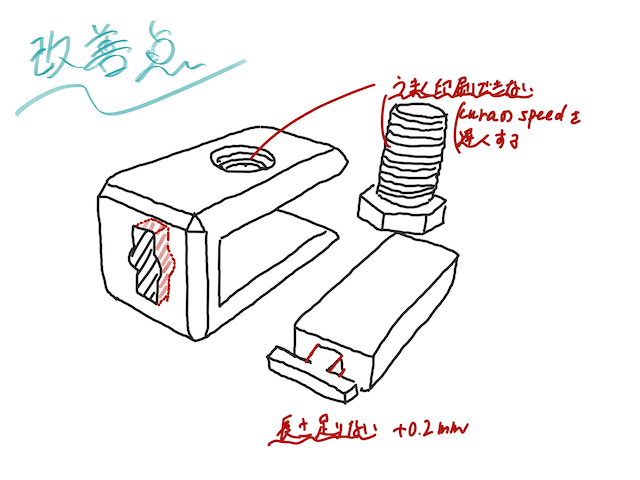 改善点
うまく印刷できない
curaのspeedを
遅くする
長さ足りない +0.2mm